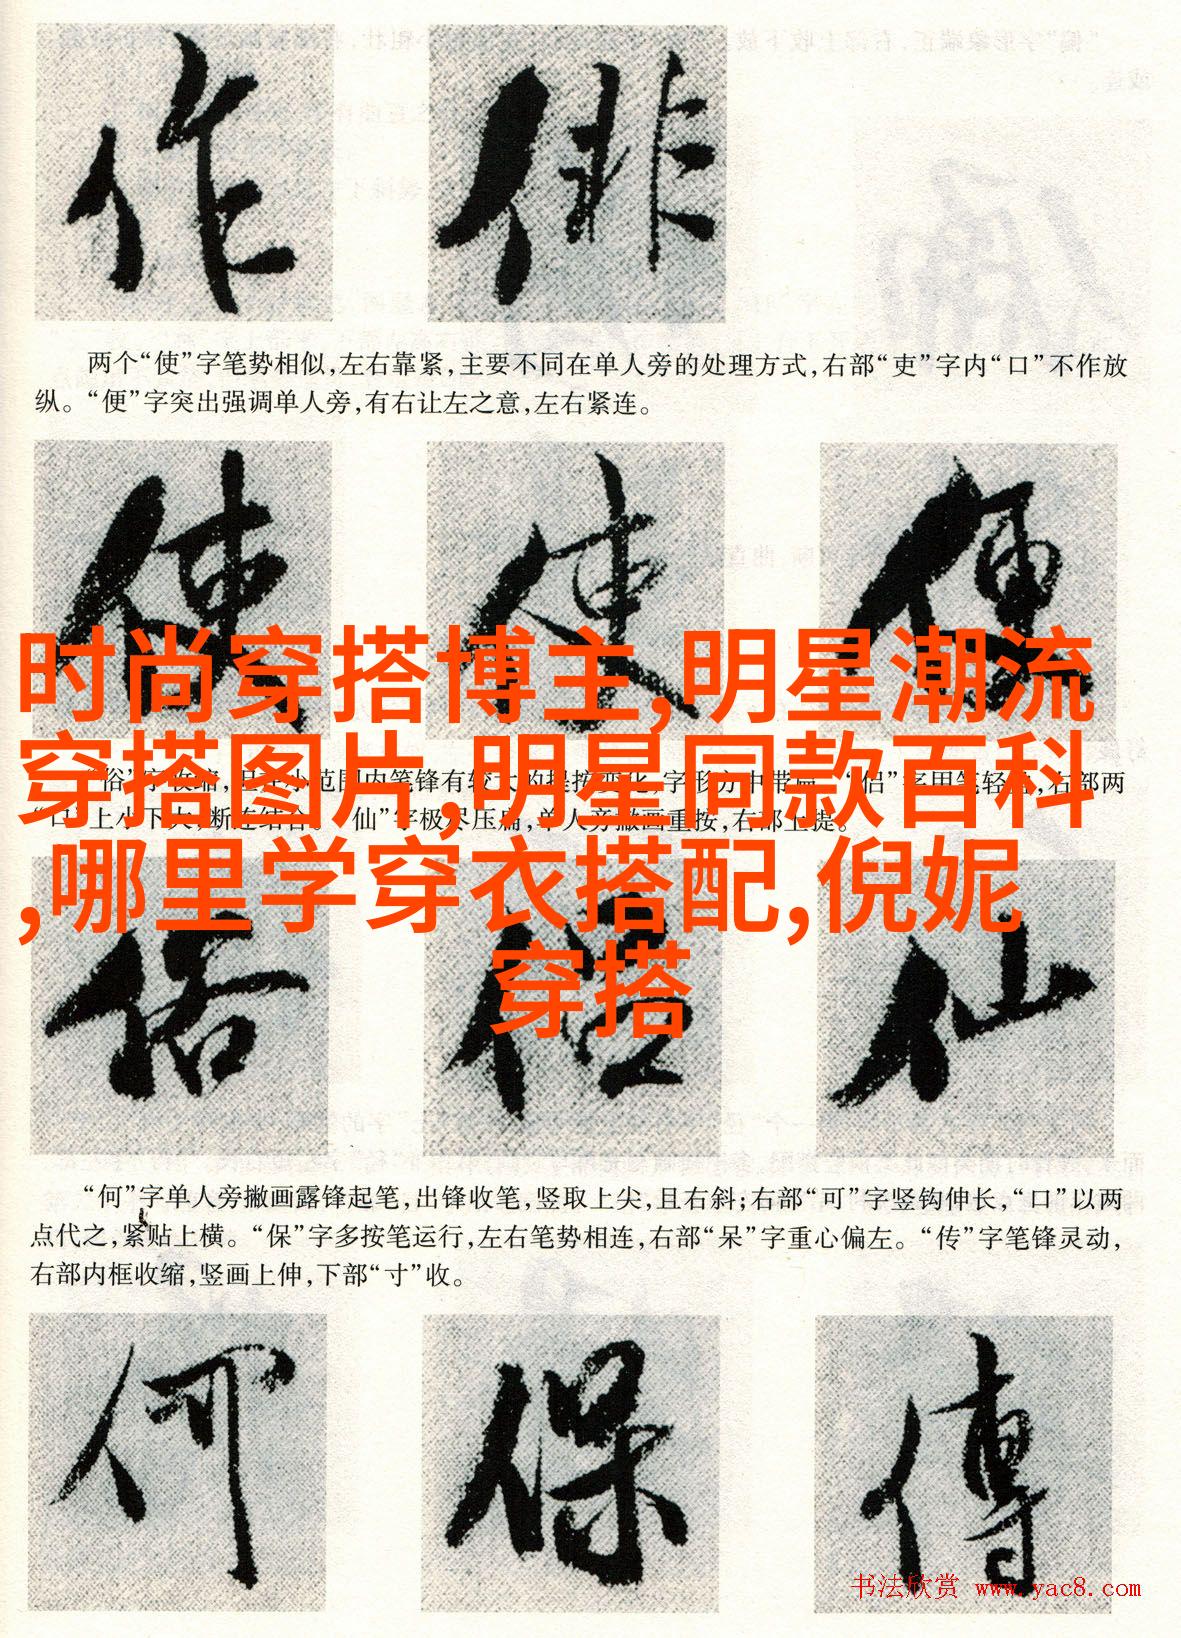 作 俳
两个“使”字笔势相似,左右靠紧,主要不同在单人旁的处理方式,右部“吏”字内“口”不作放
纵。“便”字突出强调单人旁,有右让左之意,左右紧连。
使 使 便
时尚穿搭博主,明星潮流
穿搭图片,明星同款百科
,哪里学穿衣搭配,倪妮
穿搭
“俗”字收缩,且在小范围内笔锋有较大的提按变化,字形方中带扁。“侣”字用笔轻,右部两
“口”上小下大,断连结合。“仙”字极尽压扁,单人旁撇画重按,右部上提。
俗 侣 仙
“何”字单人旁撇画露锋起笔,出锋收笔,竖取上尖,且右斜;右部“可”字竖钩伸长,“口”以两
点代之,紧贴上横。“保”字多按笔运行,左右笔势相连,右部“呆”字重心偏左。“传”字笔锋灵动,
右部内框收缩,竖画上伸,下部“寸”收。
何 保 傳
书法欣赏 www.yac8.com